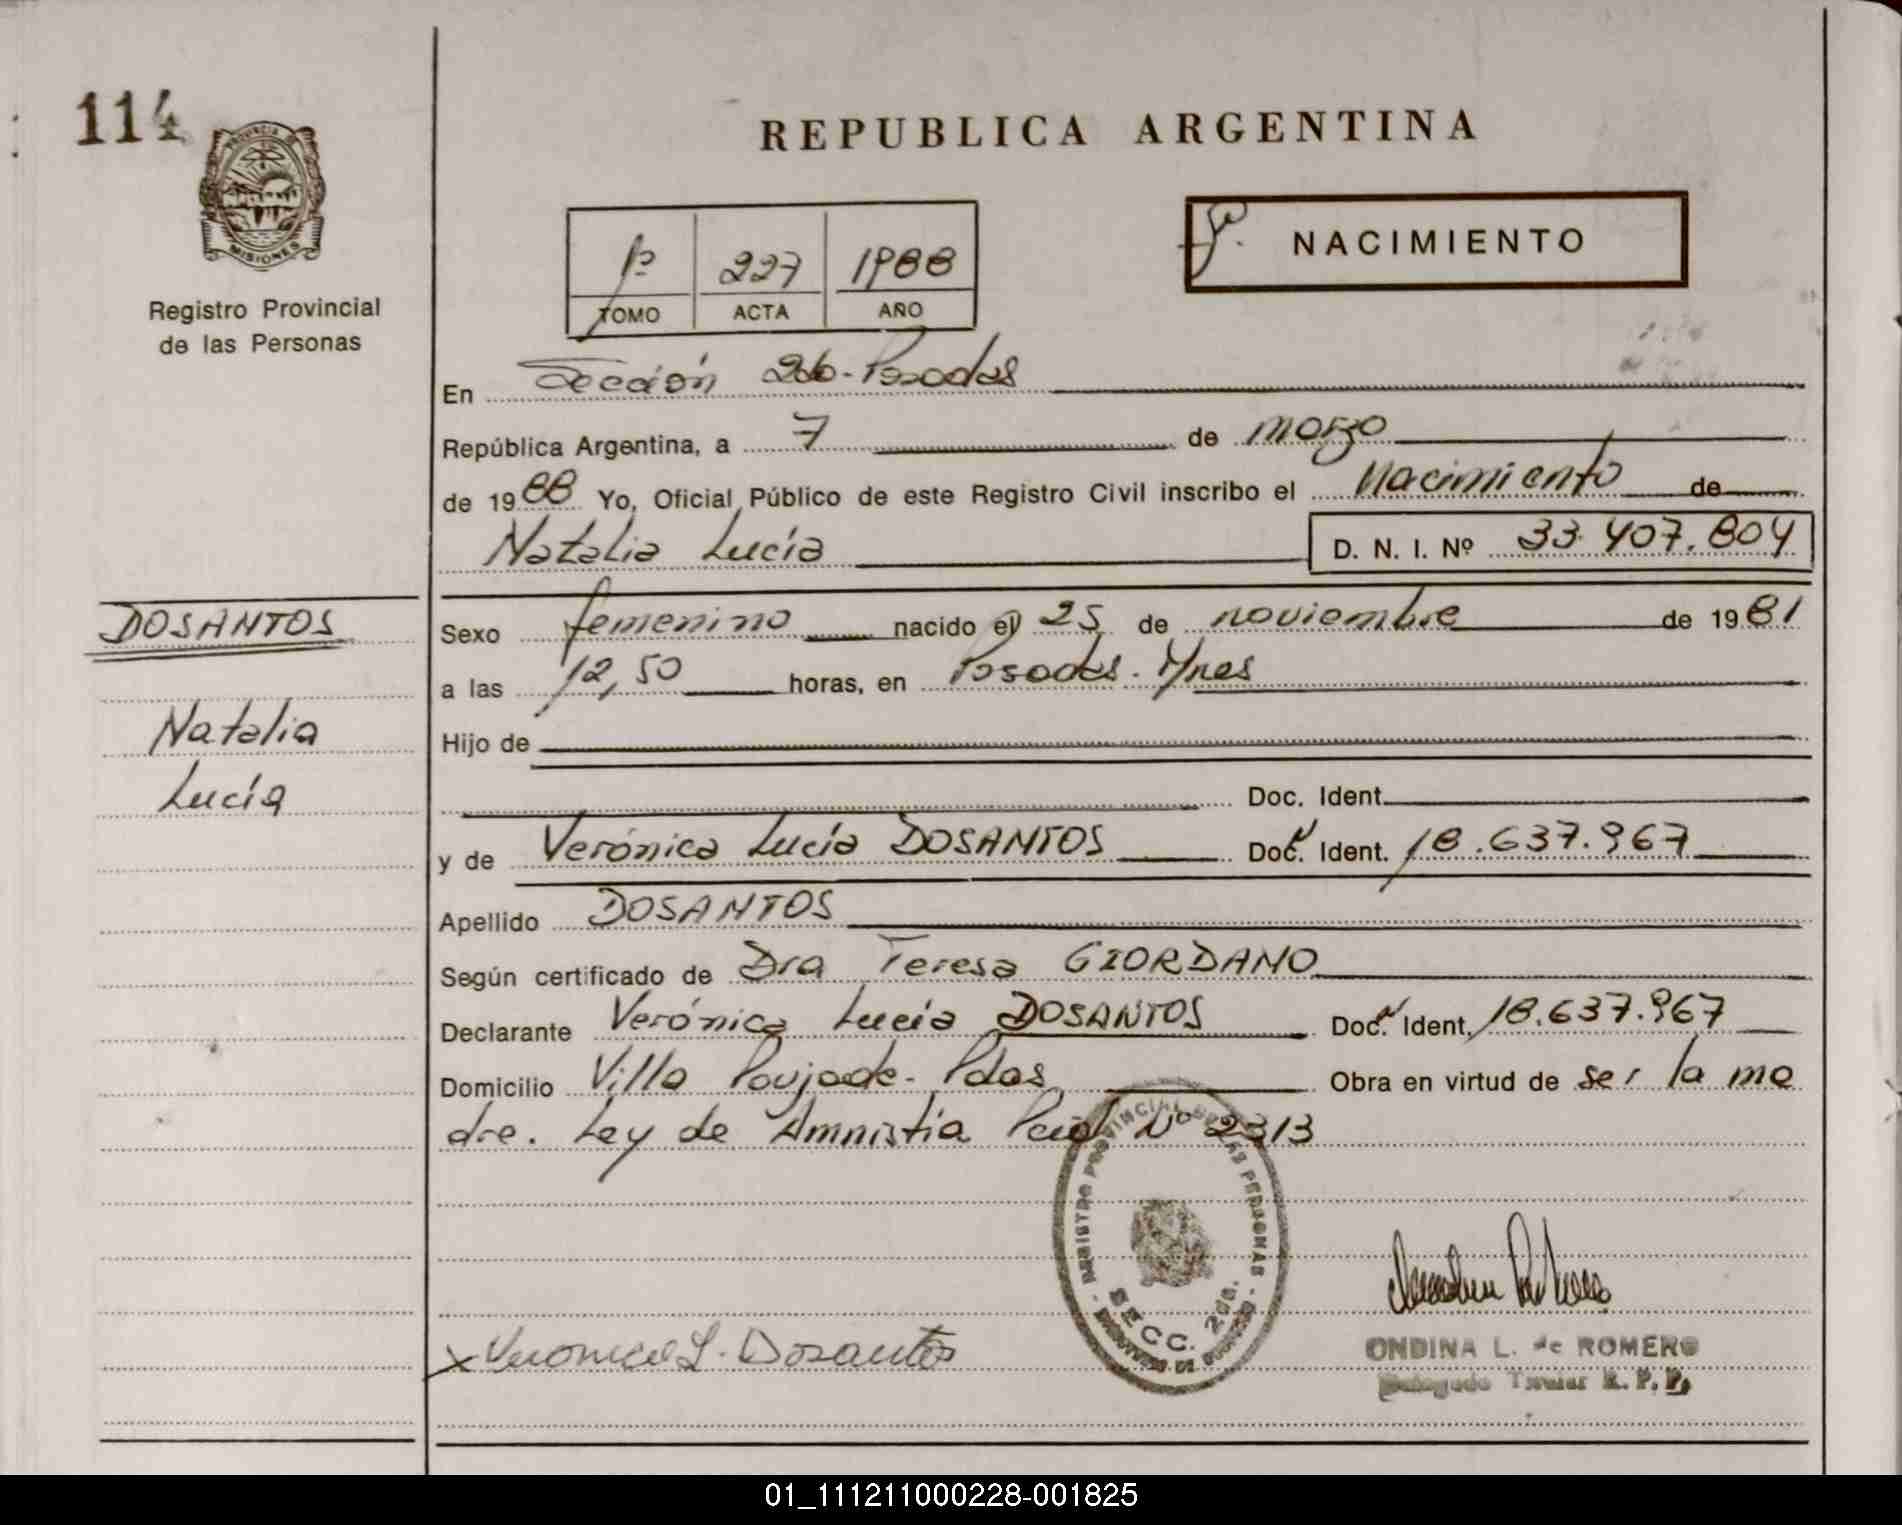 114
PROVINCIA DE
MISIONES
Registro Provincial
de las Personas
REPUBLICA ARGENTINA
1º 227 1988
TOMO ACTA AÑO
NACIMIENTO
En Sección 2da - Posadas
República Argentina, a 7 de marzo
de 1988 Yo, Oficial Público de este Registro Civil inscribo el Nacimiento de
Natalia Lucía D. N. I. Nº 33.407.804
DOSANTOS
Sexo femenino nacido el 25 de noviembre de 1981
a las 12,50 horas, en Posadas. Mnes
Natalia
Hijo de
Lucía
Doc. Ident.
y de Verónica Lucía DOSANTOS Doc. Ident. 18.637.967
Apellido DOSANTOS
Según certificado de Dra Teresa GIORDANO
Declarante Verónica Lucía DOSANTOS Doc. Ident. 18.637.967
Domicilio Villa Poujade - Pdas Obra en virtud de ser la ma
dre. Ley de Amnistia Pcial Nº 2313
REGISTRO PROVINCIAL DE LAS PERSONAS
SECC. 2da.
x Veronica L. Dosantos
ONDINA L. de ROMERO
Titular R. P. P.
01_111211000228-001825